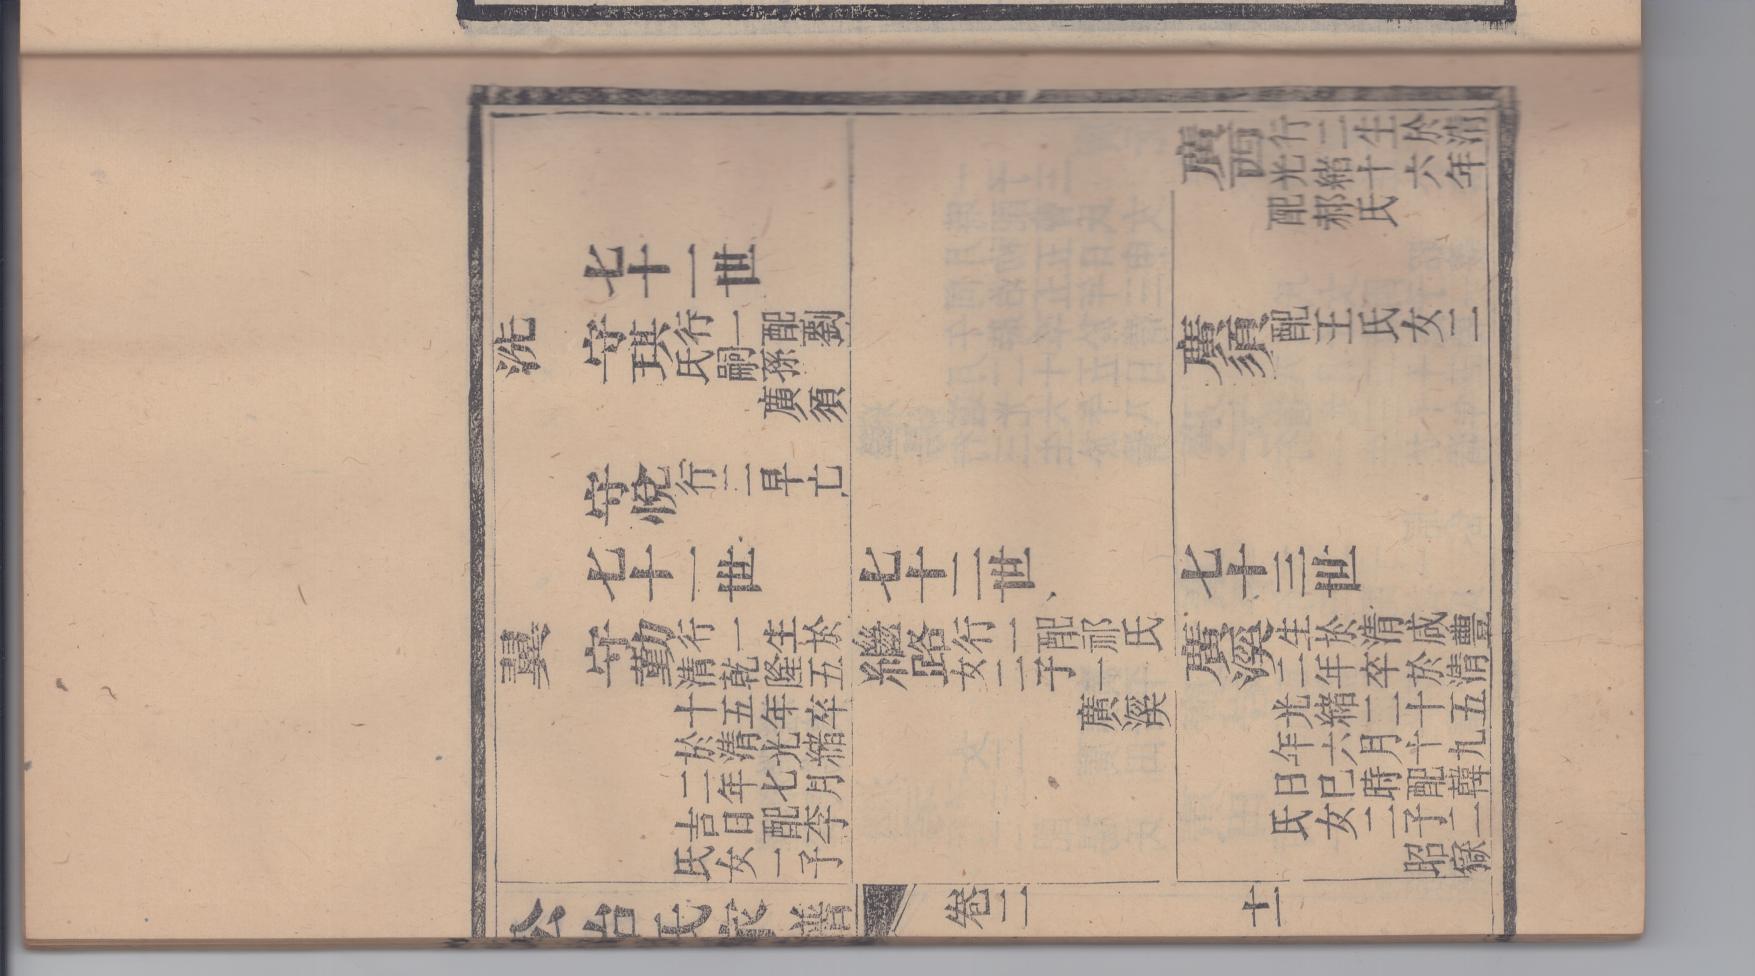 廣西 行二生於清
光緒十六年
配郝氏
七十一世
洗 守琪 行一配劉
氏嗣孫
廣須
廣須 配王氏女二
守悅 行二早亡
七十一世 七十二世 七十三世
翼 守勤 行一生於
清乾隆五
十五年卒
於清光緒
二年七月
吉日配李
氏女一子
繼路 行二配祁氏
女二子一
廣溪
廣溪 生於清咸豐
二年卒於清
光緒二十五
年六月十九
日巳時配韓
氏女二子二
昭嶽
公冶氏家譜 卷二 十一